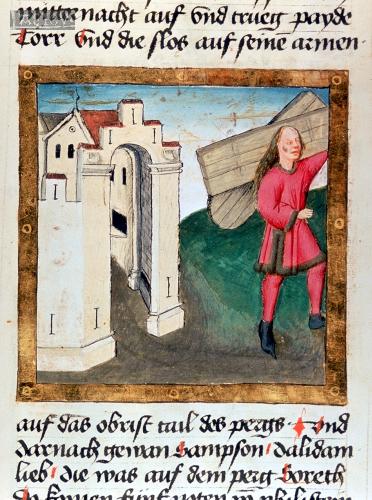 mitternacht auf vnd trueg payde
Torr vnd die slos auf seine armen
auf das obrist tail des pergs vnd
darnach gewan Sampson dalidam
lieb die was auf dem perg Soreth